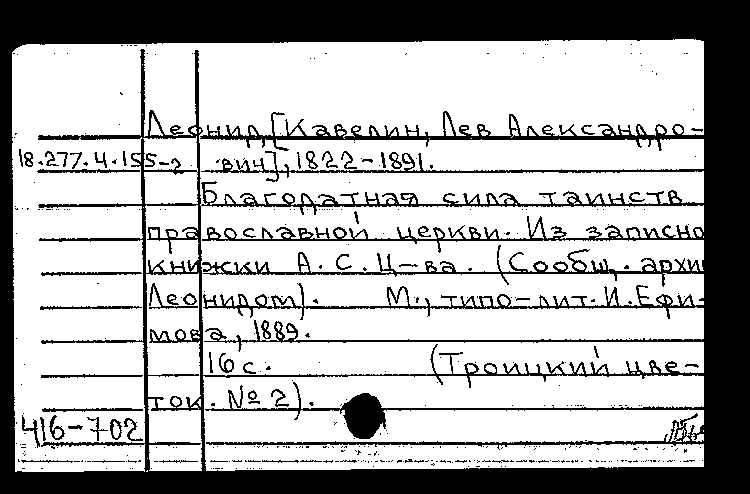 Леонид, [Кавелин, Лев Александро-
18.277.4.155-2 вич], 1822-1891.
Благодатная сила таинств
православной церкви. Из записно
книжки А.С.Ц-ва. (Сообщ. архи
Леонидом). М., типо-лит. И. Ефи-
мова, 1889.
16 с. (Троицкий цве-
ток. № 2).
416-702